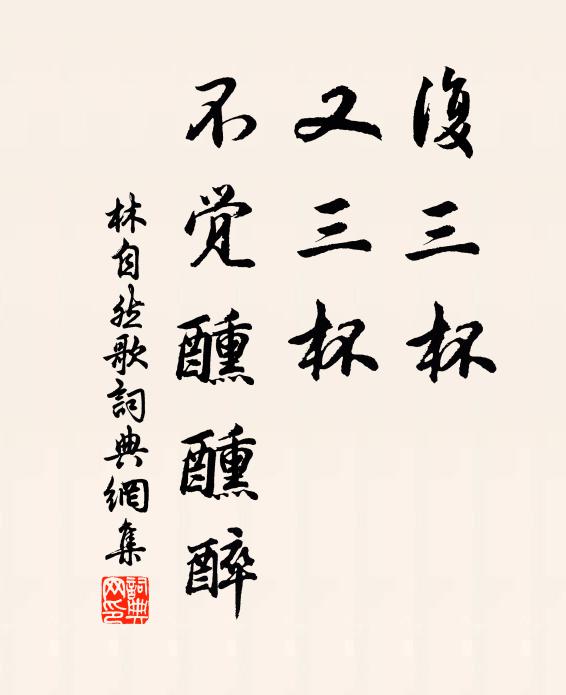 復三杯
又三杯
不觉醺醺醉
林自然歌詞典網集
詞典网印